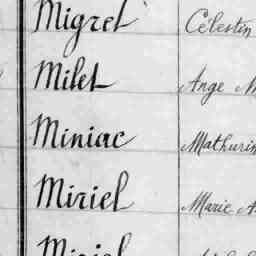 Migret Célestin
Milet Ange
Miniac Mathurin
Miriel Marie
Miriel